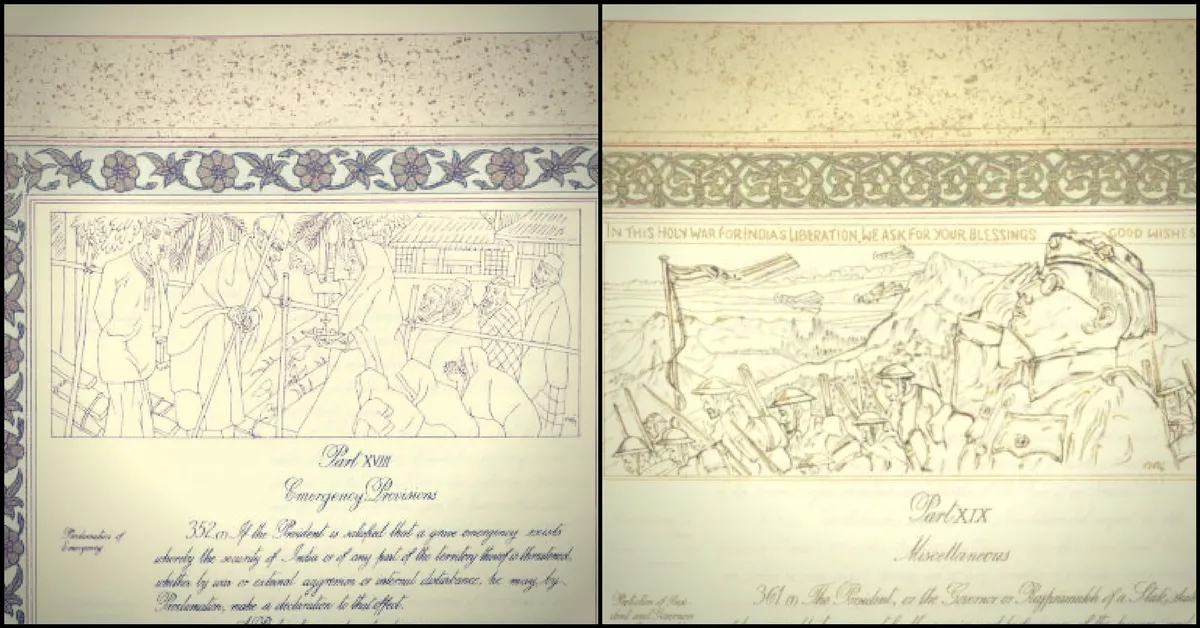 Part XVIII
Emergency Provisions
Proclamation of
Emergency
352. (1) If the President is satisfied that a grave emergency exists
whereby the security of India or of any part of the territory thereof is threatened,
whether by war or external aggression or internal disturbance, he may, by
Proclamation, make a declaration to that effect.
IN THIS HOLY WAR FOR INDIA'S LIBERATION, WE ASK FOR YOUR BLESSINGS GOOD WISHES
Part XIX
Miscellaneous
Protection of Presi-
dent and Governors
361 (1) The President, or the Governor or Rajpramukh of a State, shall